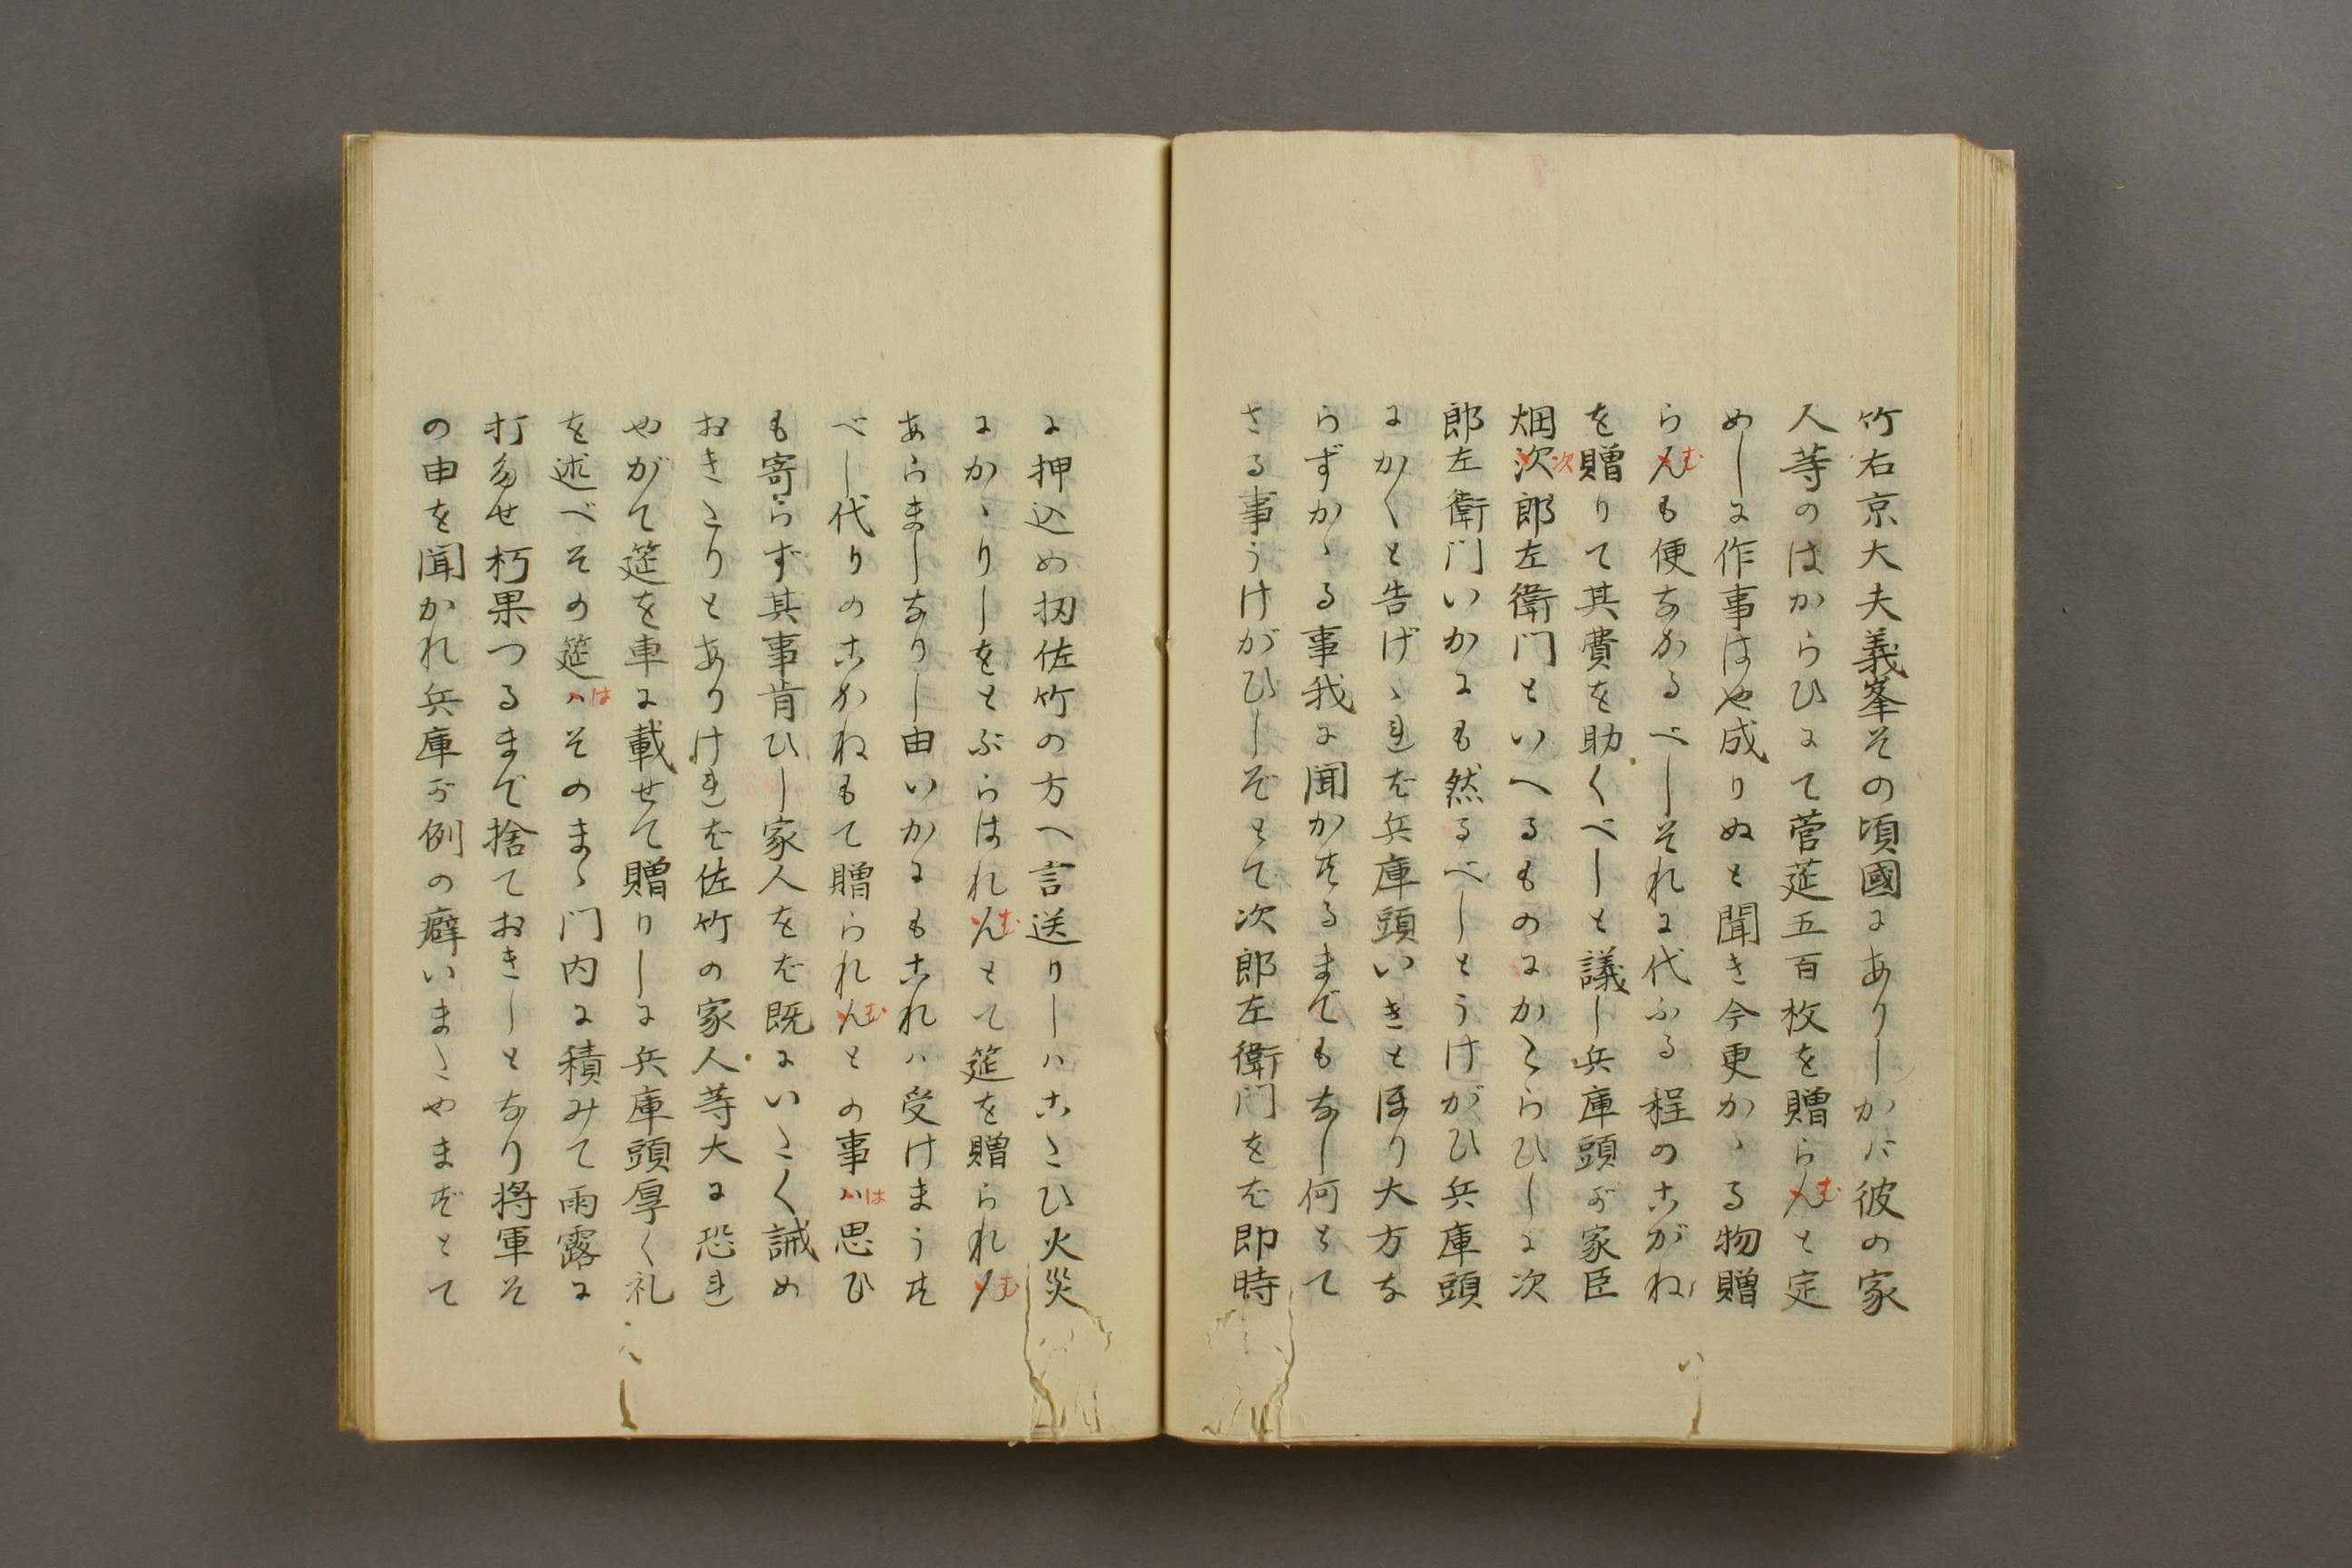 竹右京大夫義峯その頃國にありしかバ彼の家
人等のはからひにて菅莚五百枚を贈らんむと定
めしに作事はや成りぬと聞き今更かゝる物贈
らんむも便なかるべしそれに代ふる程のこがね
を贈りて其費を助くべしと議し兵庫頭が家臣
畑次次郎左衛門といへるものにかたらひしに次
郎左衛門いかにも然るべしとうけがひ兵庫頭
にかくと告げゝれば兵庫頭いきとほり大方な
らずかゝる事我に聞かするまでもなし何とて
さる事うけがひしぞとて次郎左衛門をば即時
に押込め扨佐竹の方へ言送りしハこたひ火災
にかゝりしをとぶらはれんむとて筵を贈られんむ
あらましなりし由いかにもこれハ受けまうす
べし代りのこかねもて贈られんむとの事ハは思ひ
も寄らず其事肯ひし家人をば既にいたく誡め
おきたりとありければ佐竹の家人等大に恐れ
やがて筵を車に載せて贈りしに兵庫頭厚く礼
を述べその筵ハはそのまゝ門内に積みて雨露に
打たせ朽果つるまで捨ておきしとなり将軍そ
の由を聞かれ兵庫が例の癖いまたやまずとて